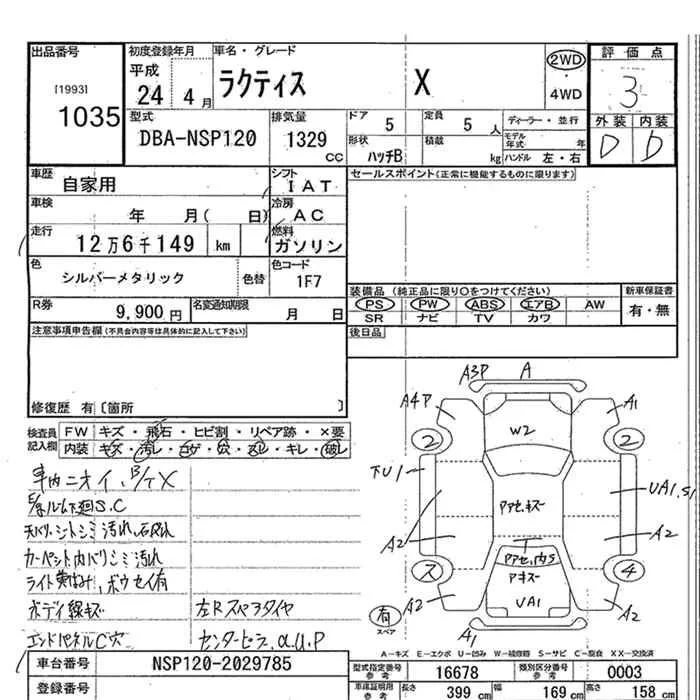 出品番号 初度登録年月 車名・グレード 2WD・4WD 評価点
[1993] 1035 平成 24 4月 ラクティス X 3
型式 排気量 ドア 5 定員 5人 ディーラー・並行 外装 内装
DBA-NSP120 1329 CC 形状 ハッチB 積載 kg モデル年式 年 ハンドル 左・右 D D
車歴 自家用 シフト IAT セールスポイント(正常に機能するものに限ります)
車検 年 月( 日) 冷房 AC
走行 12万6千149 km 燃料 ガソリン
色 シルバーメタリック 色替 色コード 1F7
装備品 (純正品に限り○をつけてください) 新車保証書
R券 9,900円 名変通知期限 月 日 PS PW ABS エアB AW 有・無
SR ナビ TV カワ
注意事項申告欄(不具合内容等は具体的に記入して下さい) 後日品
修復歴 有〔箇所 〕
検査員記入欄 FW キズ・飛石・ヒビ割・リペア跡・×要
内装 キズ・汚レ・コゲ・穴・スレ・キレ・破レ
A3P A
A4P A1
W2
2 2
車内ニオイ
S.C
シートシミ汚れ
カーペット内バリシミ汚れ
ボディ線キズ 左Rスペアタイヤ
エンドパネルC穴 センターピラーα.U.P
UA1.S1
アセ.キズ
A2 A2
ス 4
アセ.内S
アキズ
UA1
A2 A2
A1
有
スペア
A-キズ E-エクボ U-凹み W-補修跡 S-サビ C-腐食 XX-交換済
車台番号 NSP120-2029785 型式指定番号 参考 16678 類別区分番号 参考 0003
登録番号 車庫証明用 参考 長さ 399 cm 幅 169 cm 高さ 158 cm